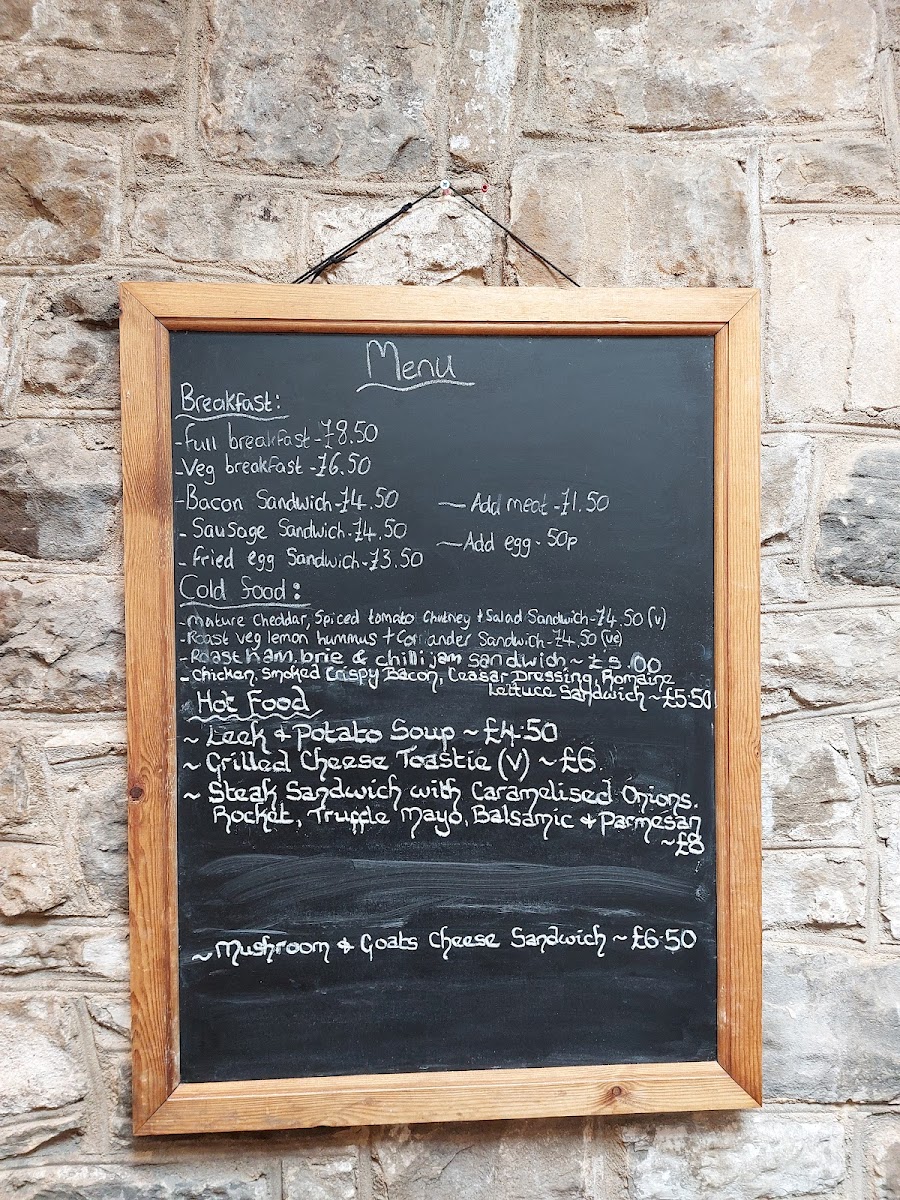 Menu
Breakfast:
-Full breakfast-£8.50
-Veg breakfast-£6.50
-Bacon Sandwich-£4.50 — Add meat-£1.50
- Sausage Sandwich-£4.50
—Add egg - 50p
- Fried egg Sandwich-£3.50
Cold Food:
-Mature Cheddar, Spiced tomato Chutney + Salad Sandwich-£4.50 (v)
-Roast veg lemon hummus + Coriander Sandwich-£4.50 (ve)
-Roast ham, brie & chilli jam sandwich ~ £5.00
- Chicken, Smoked Crispy Bacon, Ceasar Dressing, Romaine
Lettuce Sandwich ~£5.50
Hot Food
~ Leek & Potato Soup ~ £4.50
~ Grilled Cheese Toastie (v) ~ £6
~ Steak Sandwich with Caramelised Onions.
Rocket, Truffle Mayo, Balsamic & Parmesan
~£8
~ Mushroom & Goats Cheese Sandwich ~ £6.50